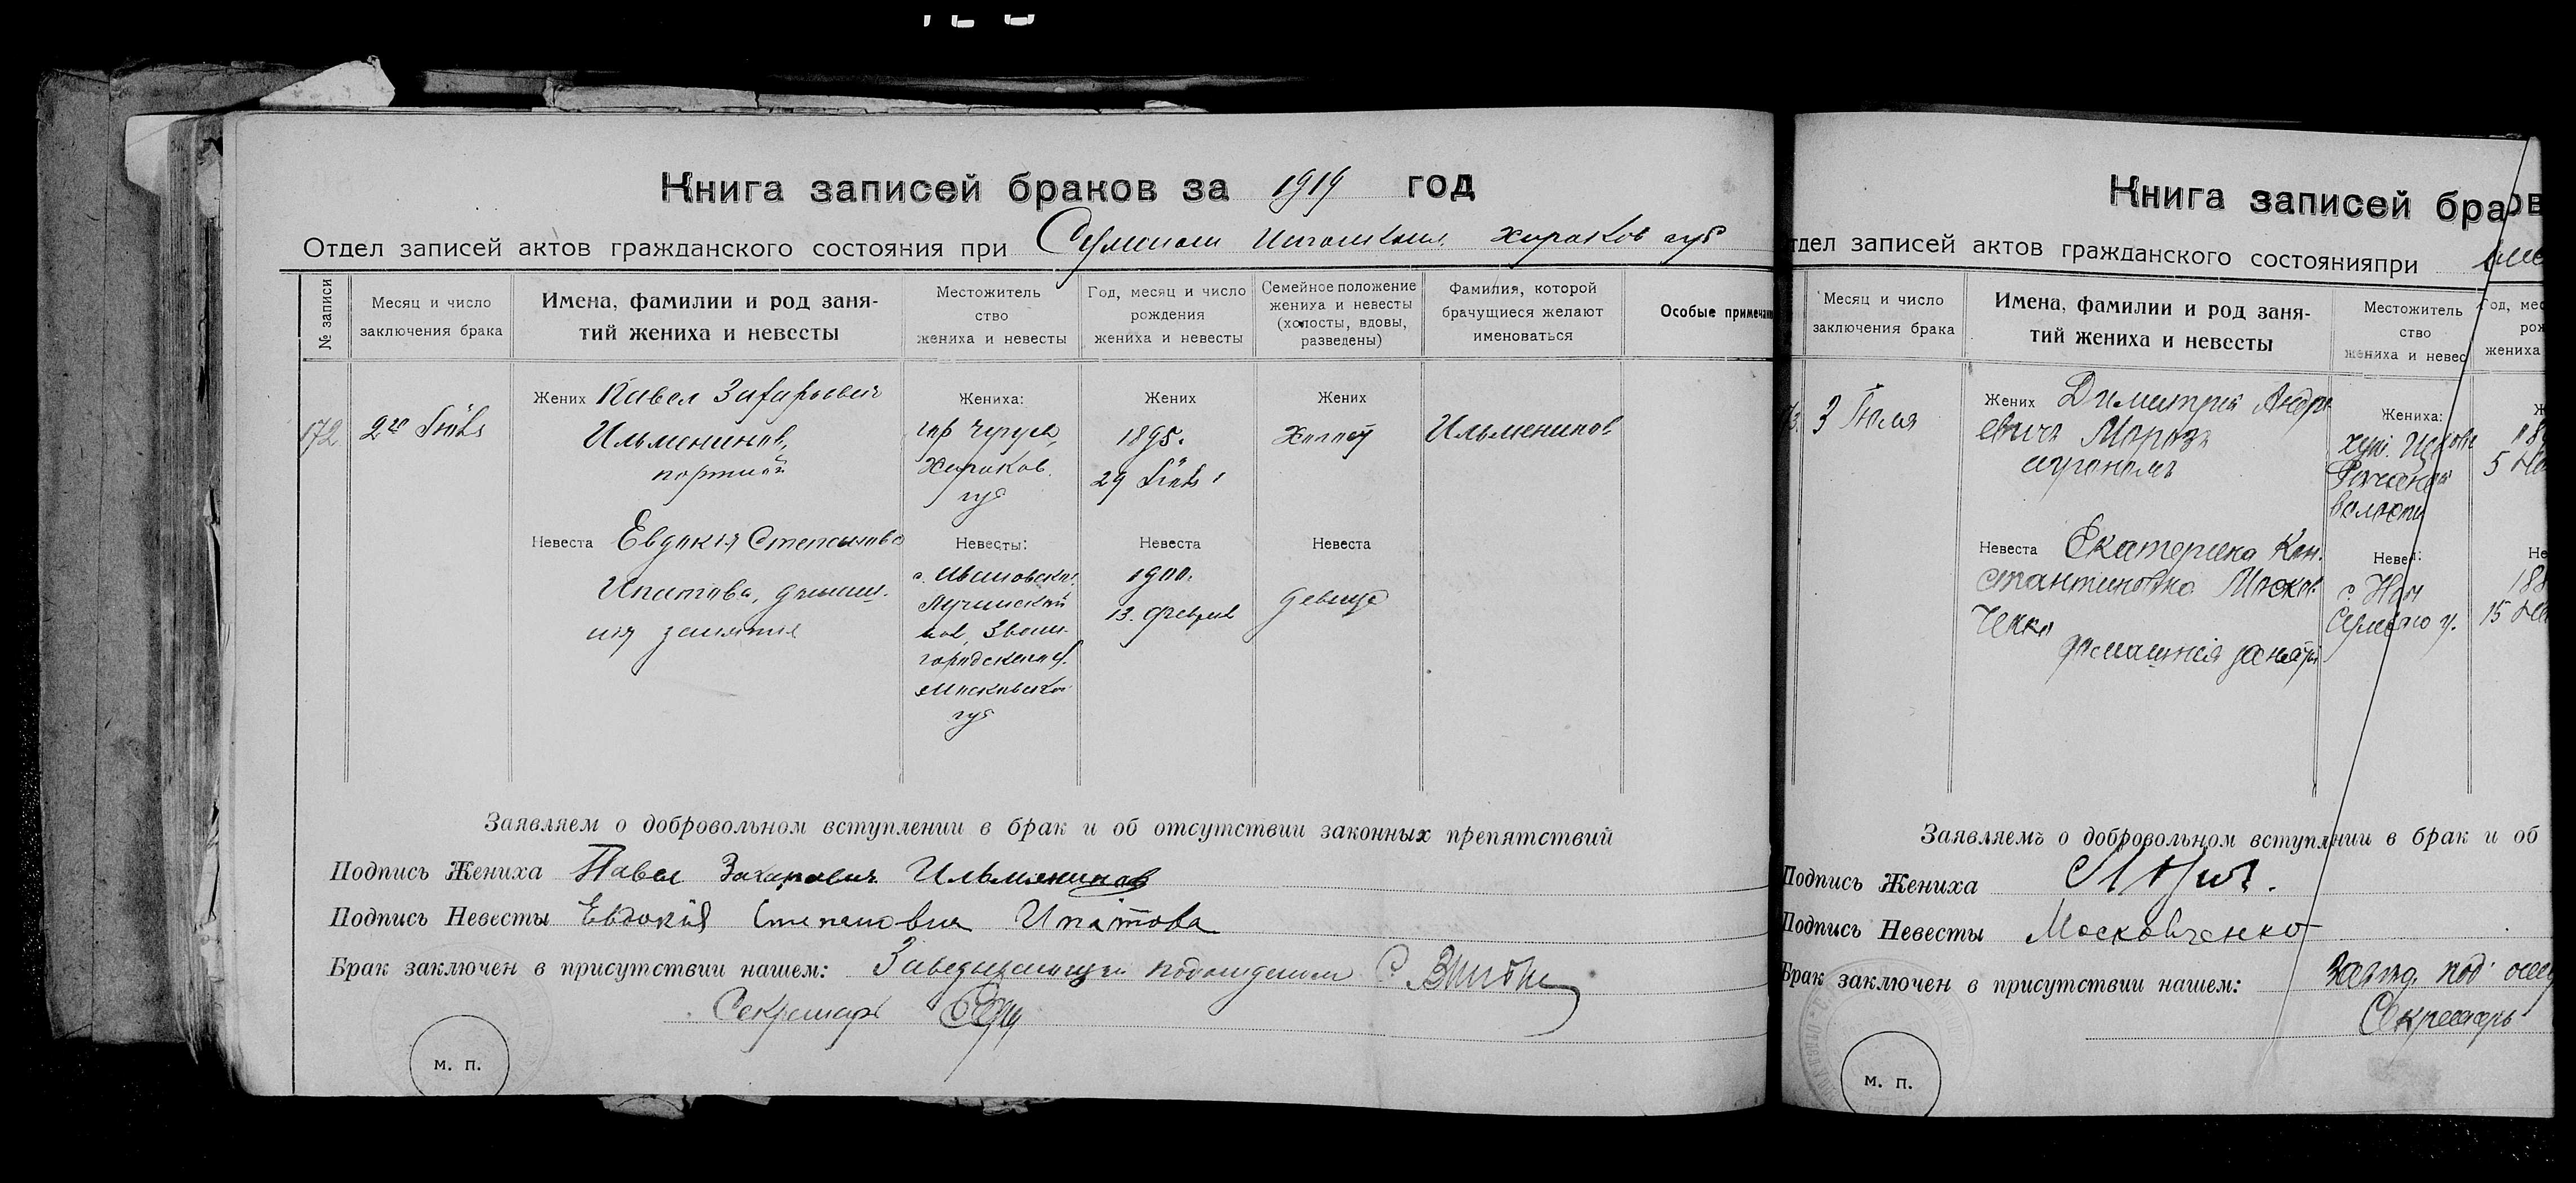 Книга записей браков за 1919 год
Отдел записей актов гражданского состояния при Сумском Харьков губ
№ записи
Месяц и число
заключения брака
Имена, фамилии и род заня-
тий жениха и невесты
Местожитель
ство
жениха и невесты
Год, месяц и число
рождения
жениха и невесты
Семейное положение
жениха и невесты
(холосты, вдовы,
разведены)
Фамилия, которой
брачущиеся желают
именоваться
Особые примечан
172
2го Июля
Жених Павел Захарьевич
Ильменинов,
портной
Жениха:
гор Чугуев
Харьков.
губ
Жених
1895.
29 Июня
Жених
Холост
Ильменинов
Невеста Евдокия Степановна
Ипатова, домаш.
ния занятия
Невесты:
с. Ивановское
Лучинской
вол, Звени-
городского у.
Московской
губ
Невеста
1900.
13. Февраля
Невеста
девица
Заявляем о добровольном вступлении в брак и об отсутствии законных препятствий
Подпись Жениха Павел Захарович Ильменинов
Подпись Невесты Евдокія Степановна Ипатова
Брак заключен в присутствии нашем: Заведывающий подотделом
Секретарь
м. п.
Книга записей бра ов
тдел записей актов гражданского состояния при
Месяц и число
заключения брака
Имена, фамилии и род заня-
тий жениха и невесты
Местожитель
ство
жениха и невес
Год, мес
рож
жениха
3 Июля
Жених Димитрий Андре
евичъ Морозъ
агрономъ
Жениха:
хут.
волости
5
Невеста Екатерина Кон.
стантиновна Москов.
ченко
домашнія занятія
Невес:
с. Низ
Сумского у.
Не
188
15
Заявляемъ о добровольном вступлении в брак и об
Подпись Жениха
Подпись Невесты Московченко
Брак заключен в присутствии нашем: Завед. под
Секретарь
м. п.